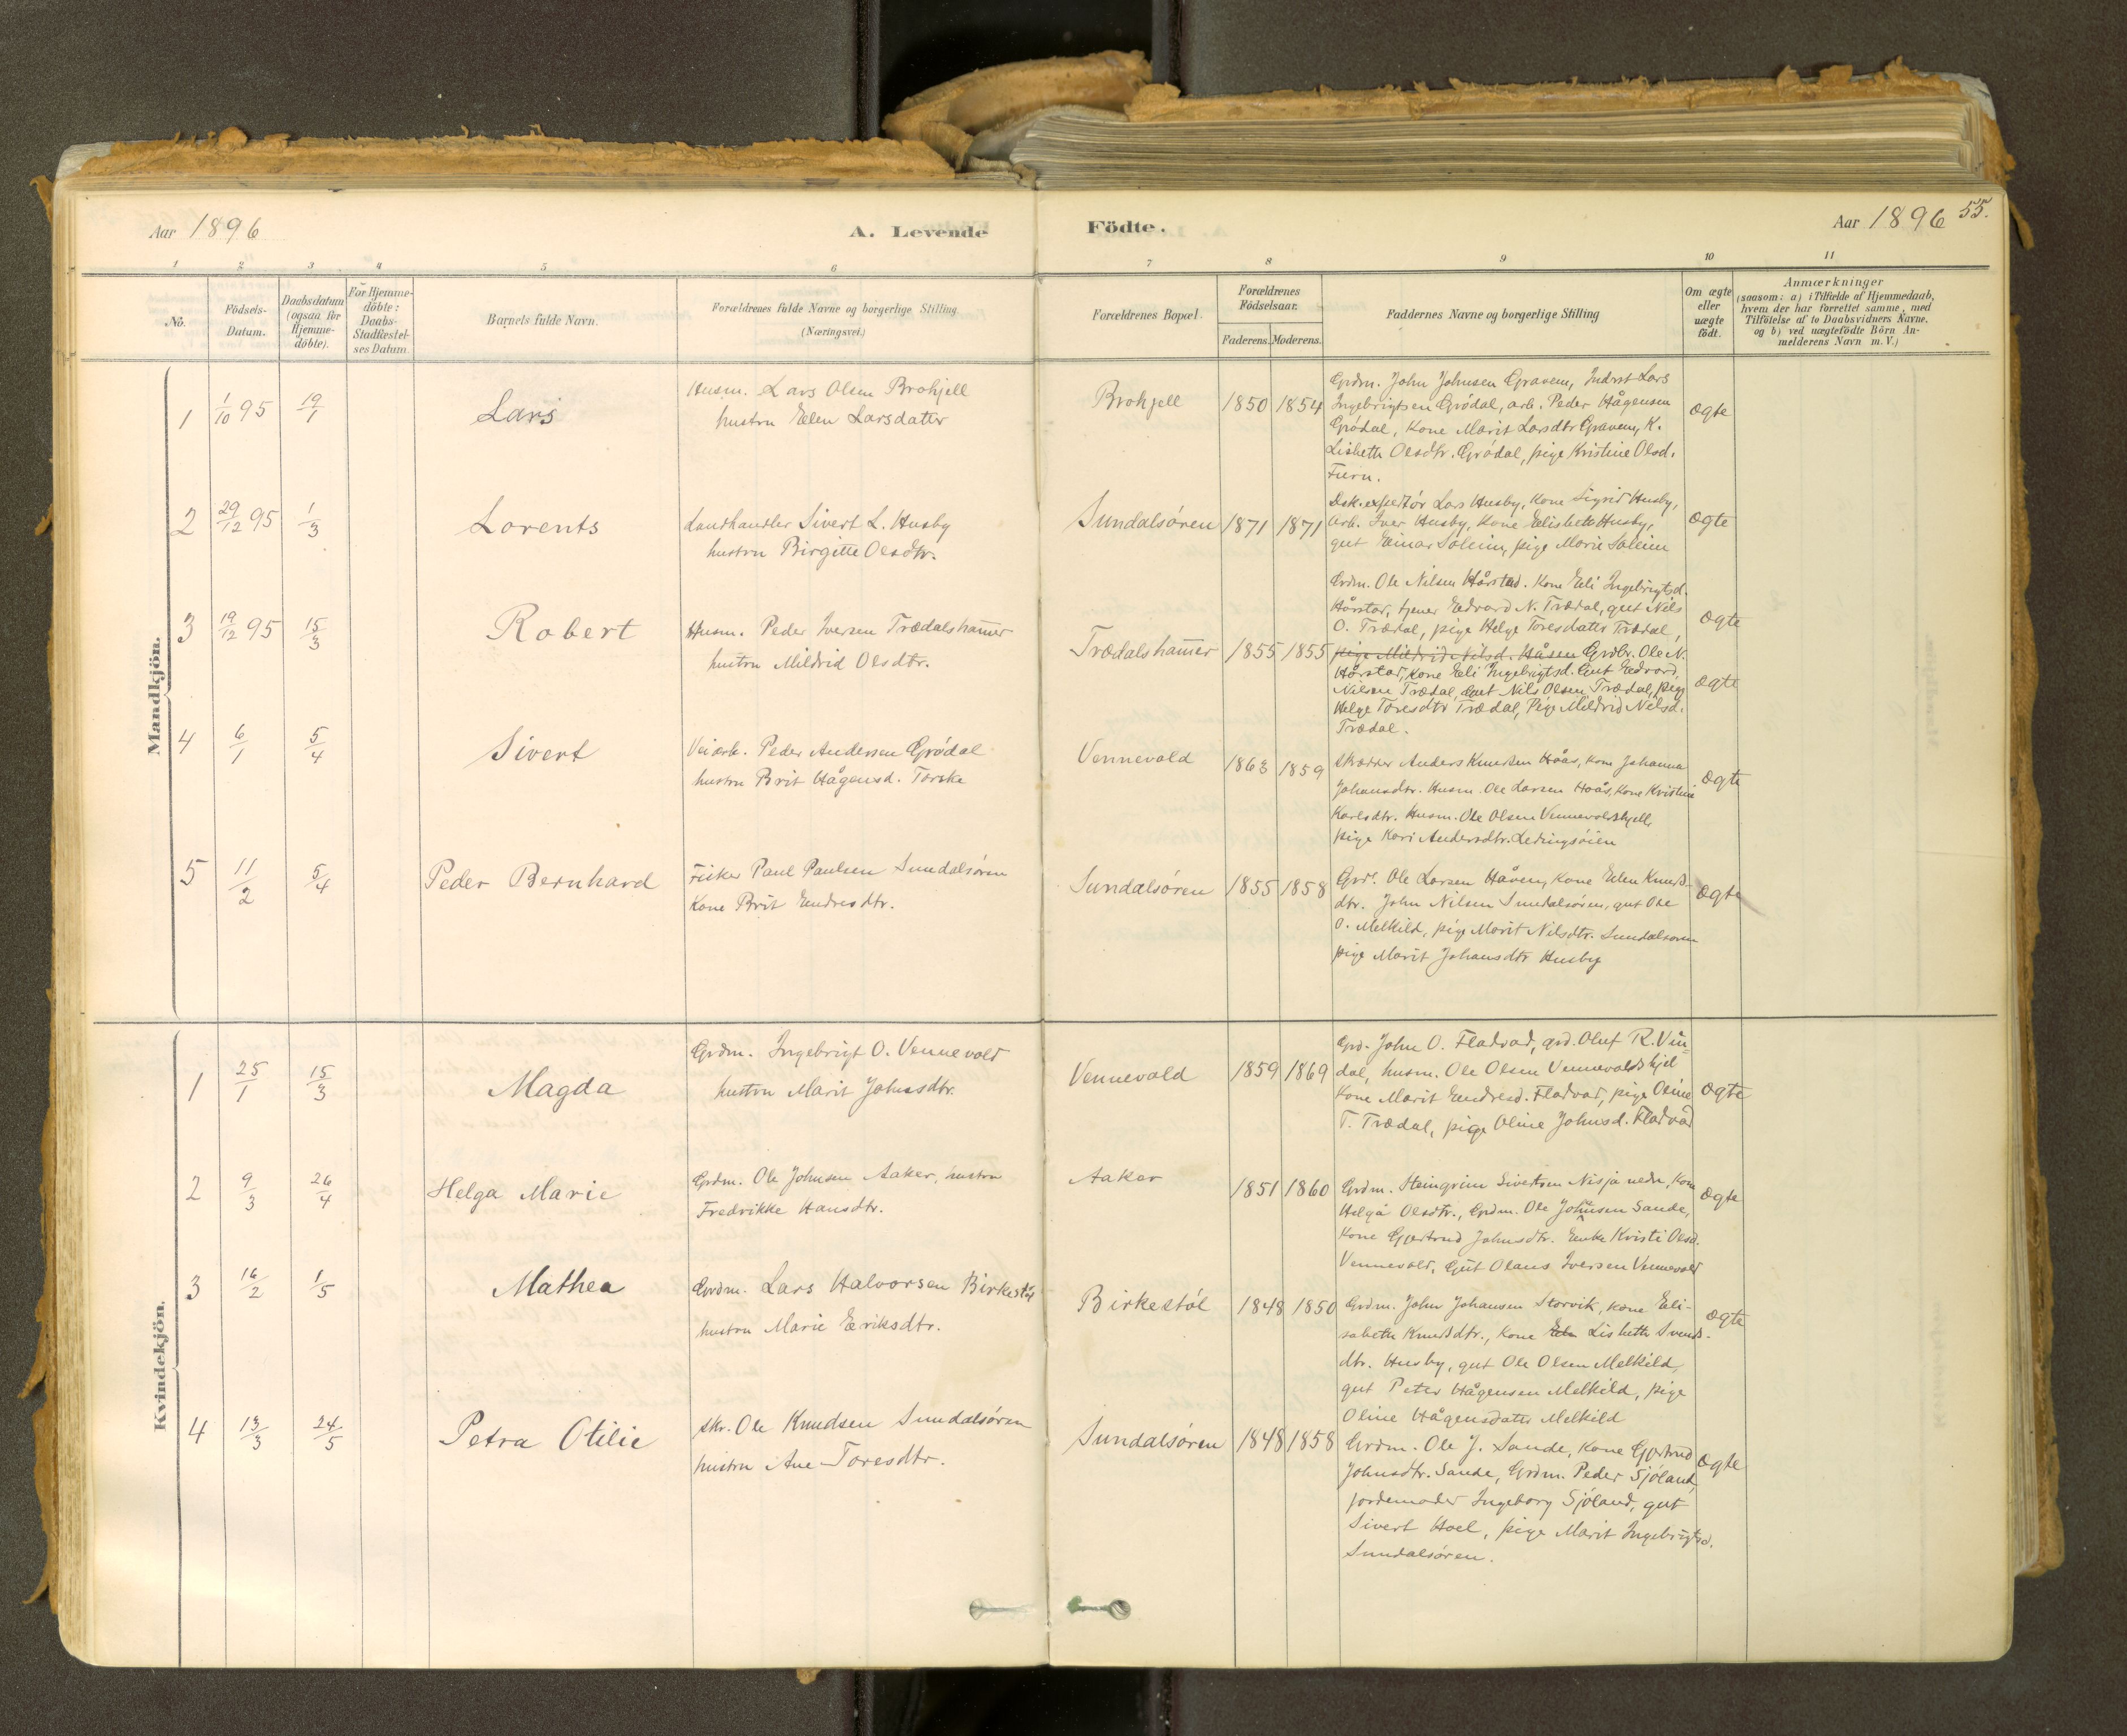 Aar 1896
A. Levende
Födte.
Aar 1896 55.
1 2 3 4 5 6 7 8 9 10 11
No.
Födsels-
Datum.
Daabsdatum
(ogsaa for
Hjemme-
döbte).
For Hjemme-
döbte:
Daabs-
Stadfæstel-
ses Datum.
Barnets fulde Navn.
Forældrenes fulde Navne og borgerlige Stilling
(Næringsvei.)
Forældrenes Bopæl.
Forældrenes
Födselsaar.
Faderens. Moderens.
Faddernes Navne og borgerlige Stilling
Om ægte
eller
uægte
födt.
Anmærkninger
(saasom: a) i Tilfælde af Hjemmedaab,
hvem der har forrettet samme, med
Tilföielse af to Daabsvidners Navne.
og b) ved uægtefödte Börn An-
melderens Navn m. V.)
Mandkjön.
1 1/10 95 19/1 Lars
Husm. Lars Olsen Brohjell
hustru Elen Larsdatter
Brohjell 1850 1854
Grdm. John Johnsen Gravem, Inderst Lars
Ingebrigtsen Grödal, arb. Peder Hågensen
Grödal, Kone Marit Larsdtr Gravem, K.
Lisbeth Olesdtr. Grödal, pige Kristine Olsd.
Furu.
ægte
2 29/12 95 1/3 Lorents
Landhandler Sivert L. Husby
hustru Birgitte Olesdtr.
Sundalsören 1871 1871
Dsk. expeditör Lars Husby, Kone Sigrid Husby,
Arb. Iver Husby, Kone Elisbeth Husby,
gut Einar Soleim, pige Marie Soleim
ægte
3 19/12 95 15/3 Robert
Husm. Peder Iversen Trædalshamer
hustru Mildrid Olsdtr.
Trædalshamer 1855 1855
Grdm. Ole Nilsen Hårstad. Kone Eli Ingebrigtsd.
Hårstad, tjener Edvard N. Trædal, gut Nils
O. Trædal, pige Helge Toresdatter Trædal,
pige Mildrid Nilsd. Håsen Grdbr. Ole N.
Hårstad, Kone Eli Ingebrigtsd. Gut Edvard
Nilsen Trædal, Gut Nils Olsen Trædal, Pige
Helge Toresdtr Trædal, Pige Mildrid Nilsd.
Trædal.
ægte
ægte
4 6/1 5/4 Sivert
Veiarb. Peder Andersen Grödal
hustru Brit Hågensd. Torske
Vennevold 1863 1859
Skrædder Anders Knudsen Hoås, Kone Johanna
Johansdtr. Husm. Ole Larsen Hoås, Kone Kristine
Karlsdtr. Husm. Ole Olsen Vennevoldshjell,
pige Kari Andersdtr. Ledingsöien
ægte
5 11/2 5/4 Peder Bernhard
Fisker Paul Paulsen Sundalsören
Kone Brit Endresdtr.
Sundalsören 1855 1858
Grdr. Ole Larsen Håven, Kone Elen Knuds-
dtr. John Nilsen Sundalsören, gut Ole
O. Melkild, pige Marit Nilsdtr. Sundalsören
pige Marit Johansdtr Husby
ægte
Kvindekjön.
1 25/1 15/3 Magda
Grdm. Ingebrigt O. Vennevold
hustru Marit Johnsdtr.
Vennevold 1859 1869
Grd. John O. Fladvad, grd. Oluf R. Vin-
dal, husm. Ole Olsen Vennevoldshjel
Kone Marit Endresd. Fladvad, pige Oline
T. Trædal, pige Oline Johnsd. Fladvad
ægte
2 9/3 26/4 Helga Marie
Grdm. Ole Johnsen Aaker, hustru
Fredrikke Hansdtr.
Aaker 1851 1860
Grdm. Steingrim Sivertsen Nisja nedr, Kone
Helga Olesdtr., Grdm. Ole Johnsen Sande,
Kone Gjertrud Johnsdtr. Enke Kristi Olesd.
Vennevold, Gut Olaus Iversen Vennevold
ægte
3 16/2 1/5 Mathea
Grdm. Lars Halvorsen Birkestöl
hustru Marie Eriksdtr.
Birkestöl 1848 1850
Grdm. John Johansen Storvik, Kone Eli-
sabeth Knudsdtr., Kone Elen Lisbeth Svends-
dtr. Husby, gut Ole Olsen Melkild,
gut Peter Hågensen Melkild, pige
Oline Hågensdatter Melkild
ægte
4 13/3 24/5 Petra Otilie
Skr. Ole Knudsen Sundalsören
hustru Ane Toresdtr.
Sundalsören 1848 1858
Grdm. Ole J. Sande, Kone Gjertrud
Johnsdtr. Sande, Grdm. Peder Sjöland,
jordemoder Ingeborg Sjöland, gut
Sivert Hoel, pige Marit Ingebrigtsd.
Sundalsören.
ægte